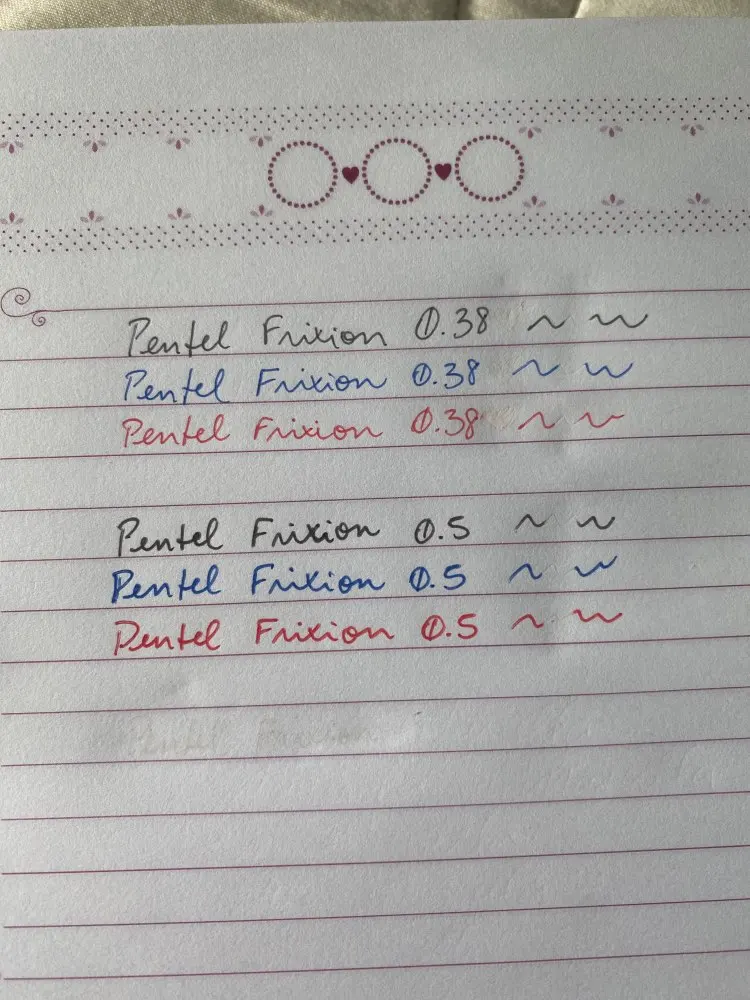 Pentel Frixion 0.38
Pentel Frixion 0.38
Pentel Frixion 0.38
Pentel Frixion 0.5
Pentel Frixion 0.5
Pentel Frixion 0.5
Pentel Frixion